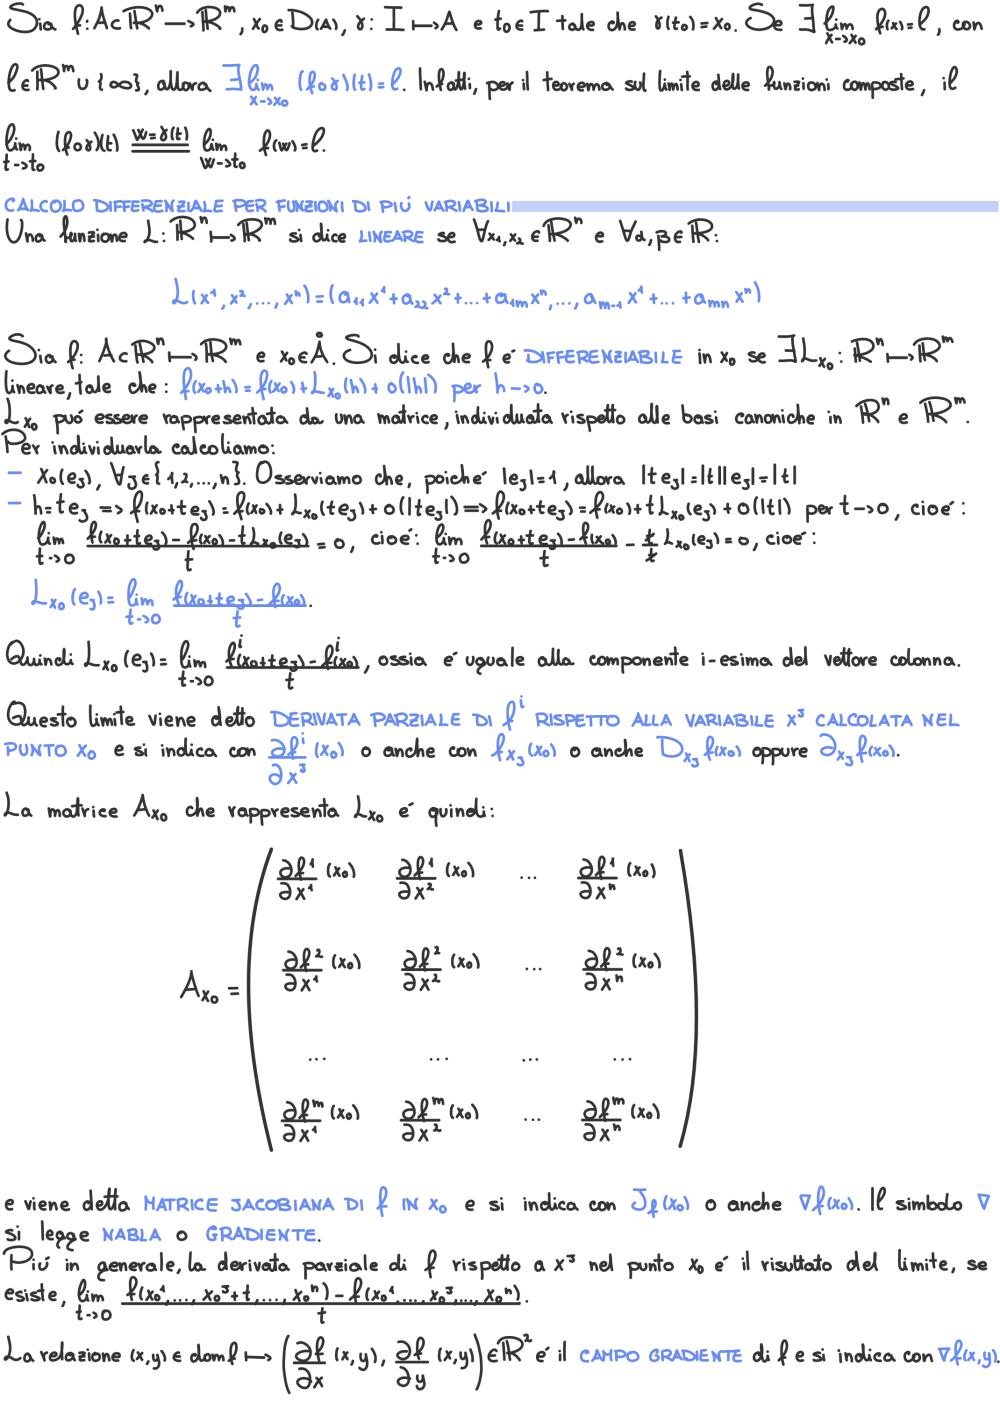 Sia f: A⊂ℝⁿ —> ℝᵐ, x₀ ∈ D(A), γ: I ↦ A e t₀ ∈ I tale che γ(t₀) = x₀. Se ∃ lim_{x->x₀} f(x) = l, con
l ∈ ℝᵐ ∪ {∞}, allora ∃ lim_{x->x₀} (f∘γ)(t) = l. Infatti, per il teorema sul limite delle funzioni composte, il
lim_{t->t₀} (f∘γ)(t) =^{w=γ(t)} lim_{w->t₀} f(w) = l.
CALCOLO DIFFERENZIALE PER FUNZIONI DI PIÚ VARIABILI
Una funzione L: ℝⁿ ↦ ℝᵐ si dice LINEARE se ∀x₁,x₂ ∈ ℝⁿ e ∀α,β ∈ ℝ:
L(x¹, x², ..., xⁿ) = (a₁₁ x¹ + a₂₂ x² + ... + a₁ₘ xⁿ, ..., a_{m-1} x¹ + ... + a_{mn} xⁿ)
Sia f: A⊂ℝⁿ ↦ ℝᵐ e x₀ ∈ Å. Si dice che f é DIFFERENZIABILE in x₀ se ∃ L_{x₀}: ℝⁿ ↦ ℝᵐ
lineare, tale che: f(x₀+h) = f(x₀) + L_{x₀}(h) + o(|h|) per h -> 0.
L_{x₀} puó essere rappresentata da una matrice, individuata rispetto alle basi canoniche in ℝⁿ e ℝᵐ.
Per individuarla calcoliamo:
- X₀(e_j), ∀j ∈ {1,2,...,n}. Osserviamo che, poiché |e_j| = 1, allora |te_j| = |t||e_j| = |t|
- h = te_j => f(x₀+te_j) = f(x₀) + L_{x₀}(te_j) + o(|te_j|) => f(x₀+te_j) = f(x₀) + tL_{x₀}(e_j) + o(|t|) per t -> 0, cioé:
lim_{t->0} (f(x₀+te_j) - f(x₀) - tL_{x₀}(e_j))/t = 0, cioé: lim_{t->0} (f(x₀+te_j) - f(x₀))/t - t/t L_{x₀}(e_j) = 0, cioé:
L_{x₀}(e_j) = lim_{t->0} (f(x₀+te_j) - f(x₀))/t.
Quindi L_{x₀}(e_j) = lim_{t->0} (fⁱ(x₀+te_j) - fⁱ(x₀))/t, ossia é uguale alla componente i-esima del vettore colonna.
Questo limite viene detto DERIVATA PARZIALE DI fⁱ RISPETTO ALLA VARIABILE xʲ CALCOLATA NEL
PUNTO x₀ e si indica con ∂fⁱ/∂xʲ (x₀) o anche con f_{x_j}(x₀) o anche D_{x_j} f(x₀) oppure ∂_{x_j} f(x₀).
La matrice A_{x₀} che rappresenta L_{x₀} é quindi:
∂f¹/∂x¹ (x₀) ∂f¹/∂x² (x₀) ... ∂f¹/∂xⁿ (x₀)
∂f²/∂x¹ (x₀) ∂f²/∂x² (x₀) ... ∂f²/∂xⁿ (x₀)
A_{x₀} =
... ... ... ...
∂fᵐ/∂x¹ (x₀) ∂fᵐ/∂x² (x₀) ... ∂fᵐ/∂xⁿ (x₀)
e viene detta MATRICE JACOBIANA DI f IN x₀ e si indica con J_f(x₀) o anche ∇f(x₀). Il simbolo ∇
si legge NABLA o GRADIENTE.
Piú in generale, la derivata parziale di f rispetto a xʲ nel punto x₀ é il risultato del limite, se
esiste, lim_{t->0} (f(x₀¹, ..., x₀ʲ+t, ..., x₀ⁿ) - f(x₀¹, ..., x₀ʲ, ..., x₀ⁿ))/t.
La relazione (x,y) ∈ domf ↦ (∂f/∂x (x,y), ∂f/∂y (x,y)) ∈ ℝ² é il CAMPO GRADIENTE di f e si indica con ∇f(x,y).